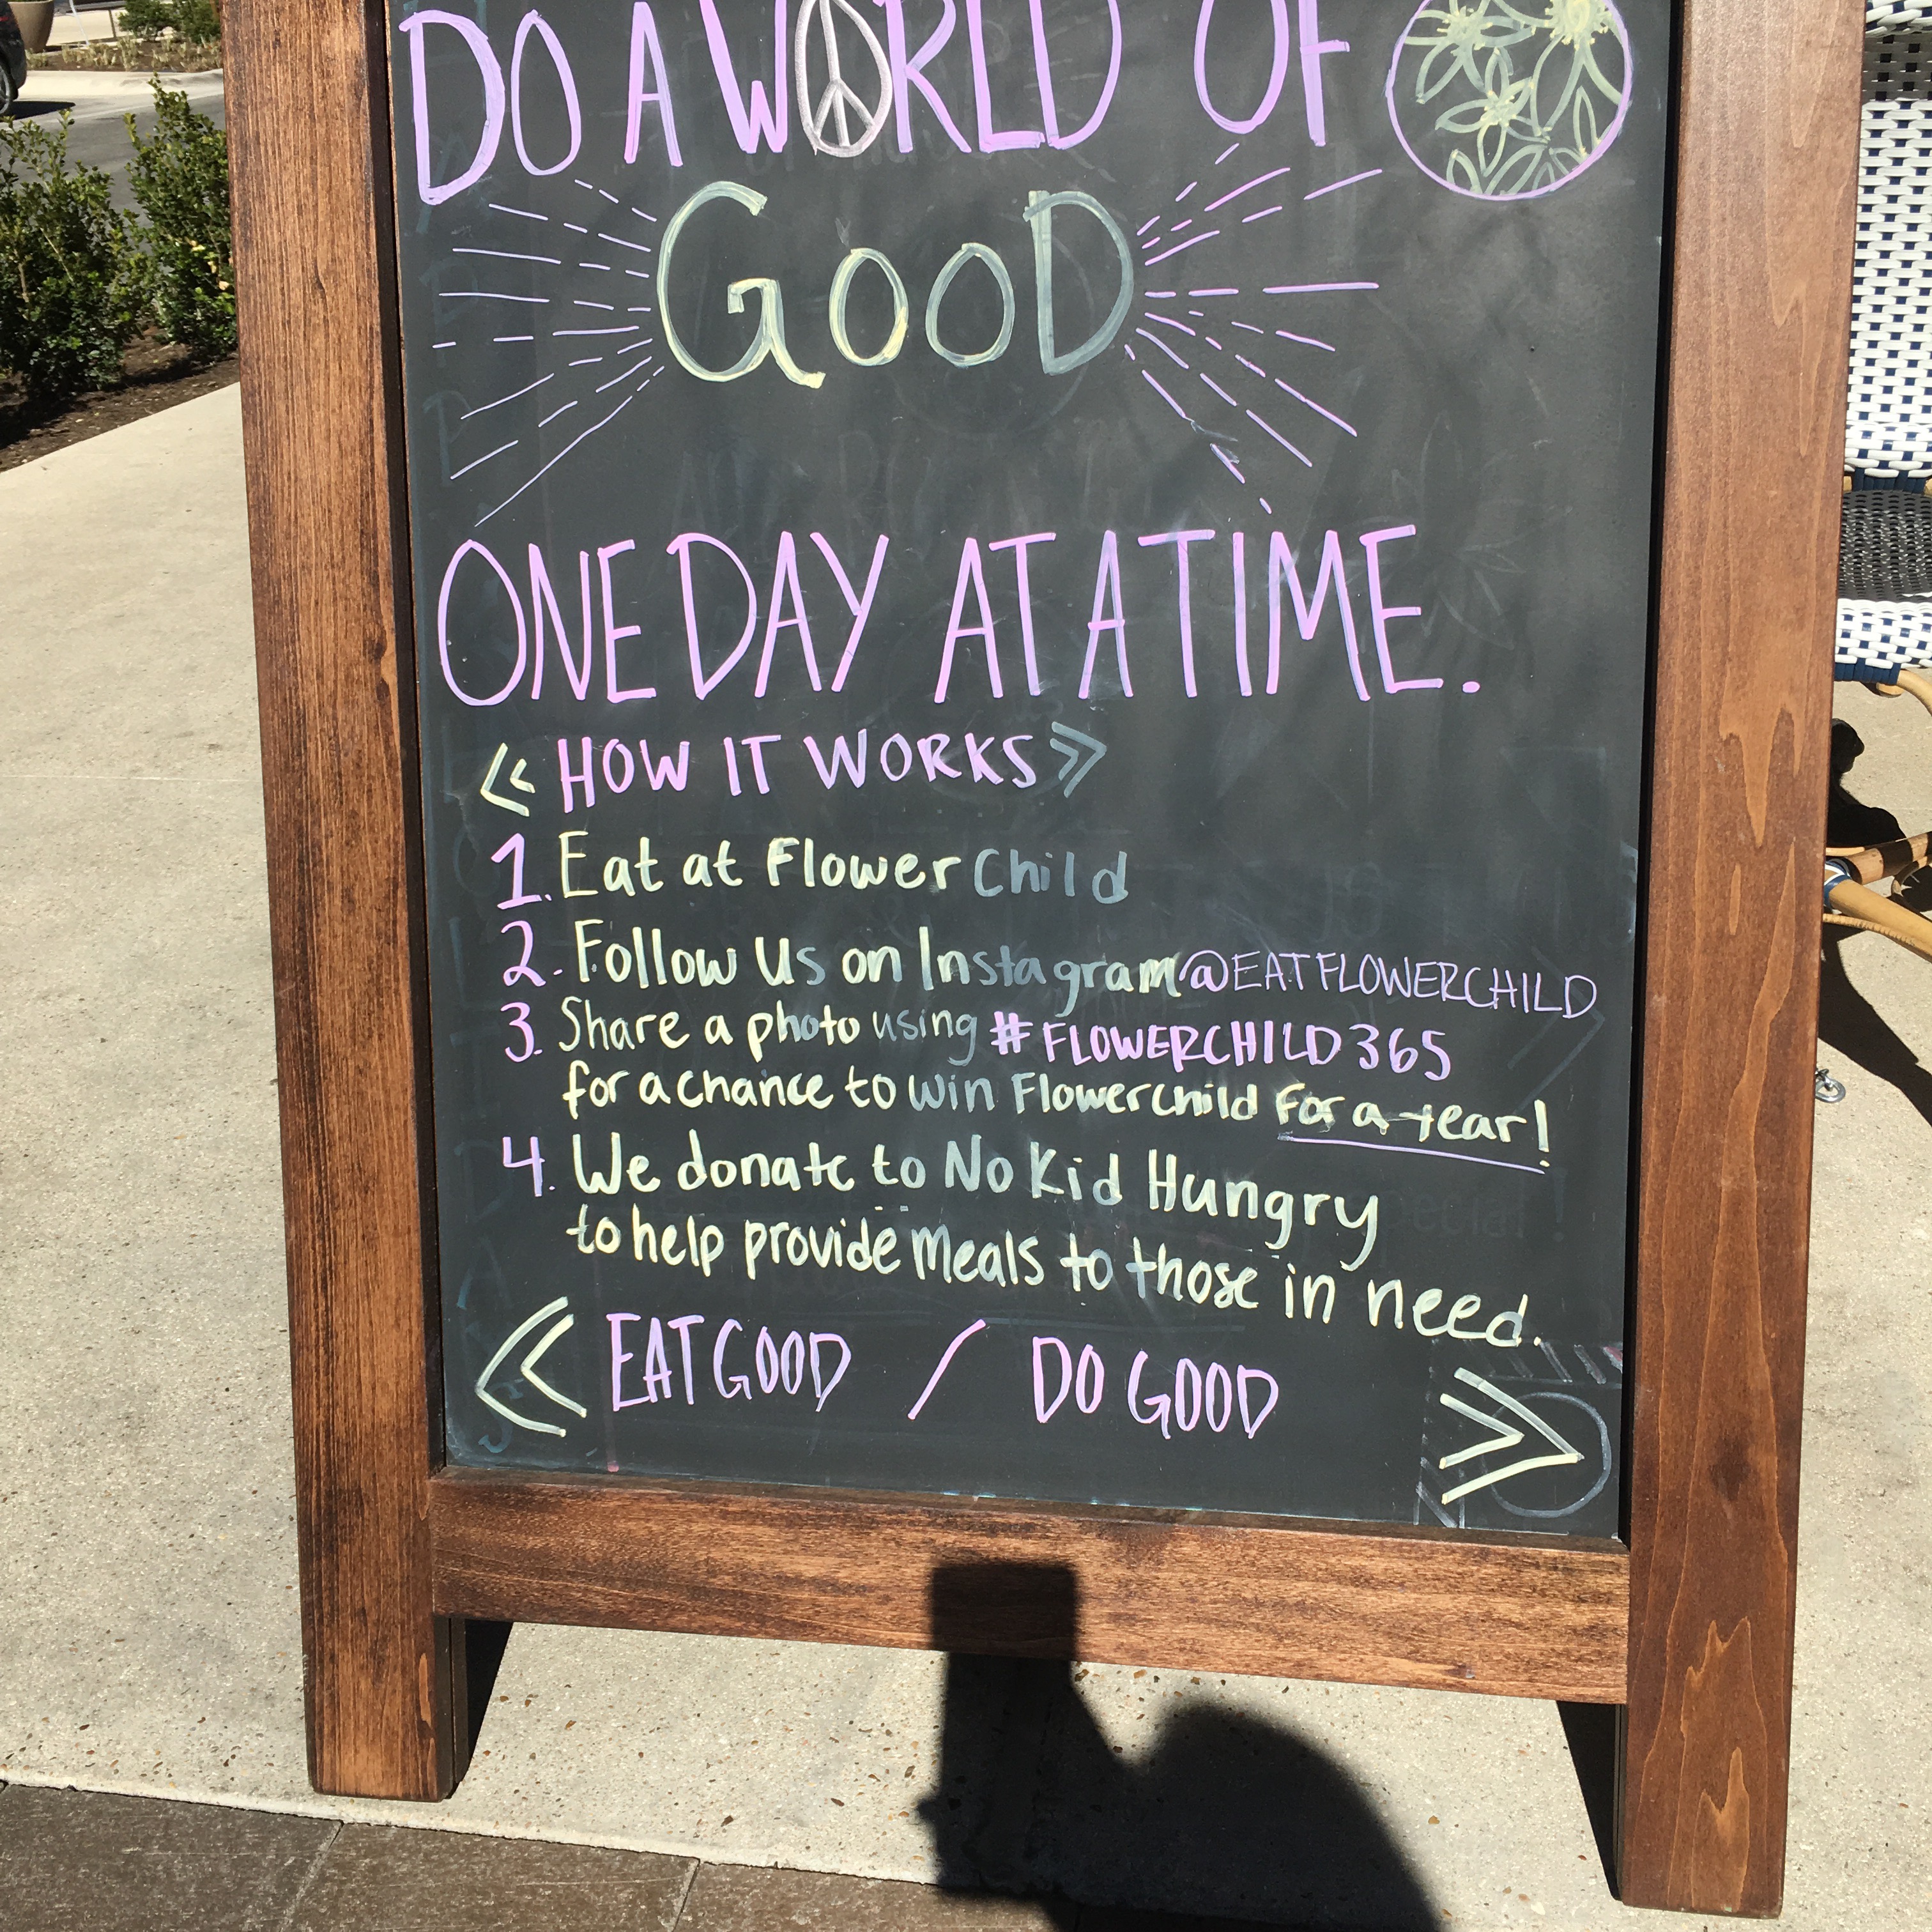 DO A WORLD OF
GOOD
ONE DAY AT A TIME.
« HOW IT WORKS »
1. Eat at Flower Child
2. Follow Us on Instagram @EATFLOWERCHILD
3. Share a photo using #FLOWERCHILD365
for a chance to win Flowerchild for a year!
4. We donate to No Kid Hungry
to help provide meals to those in need.
« EAT GOOD / DO GOOD »